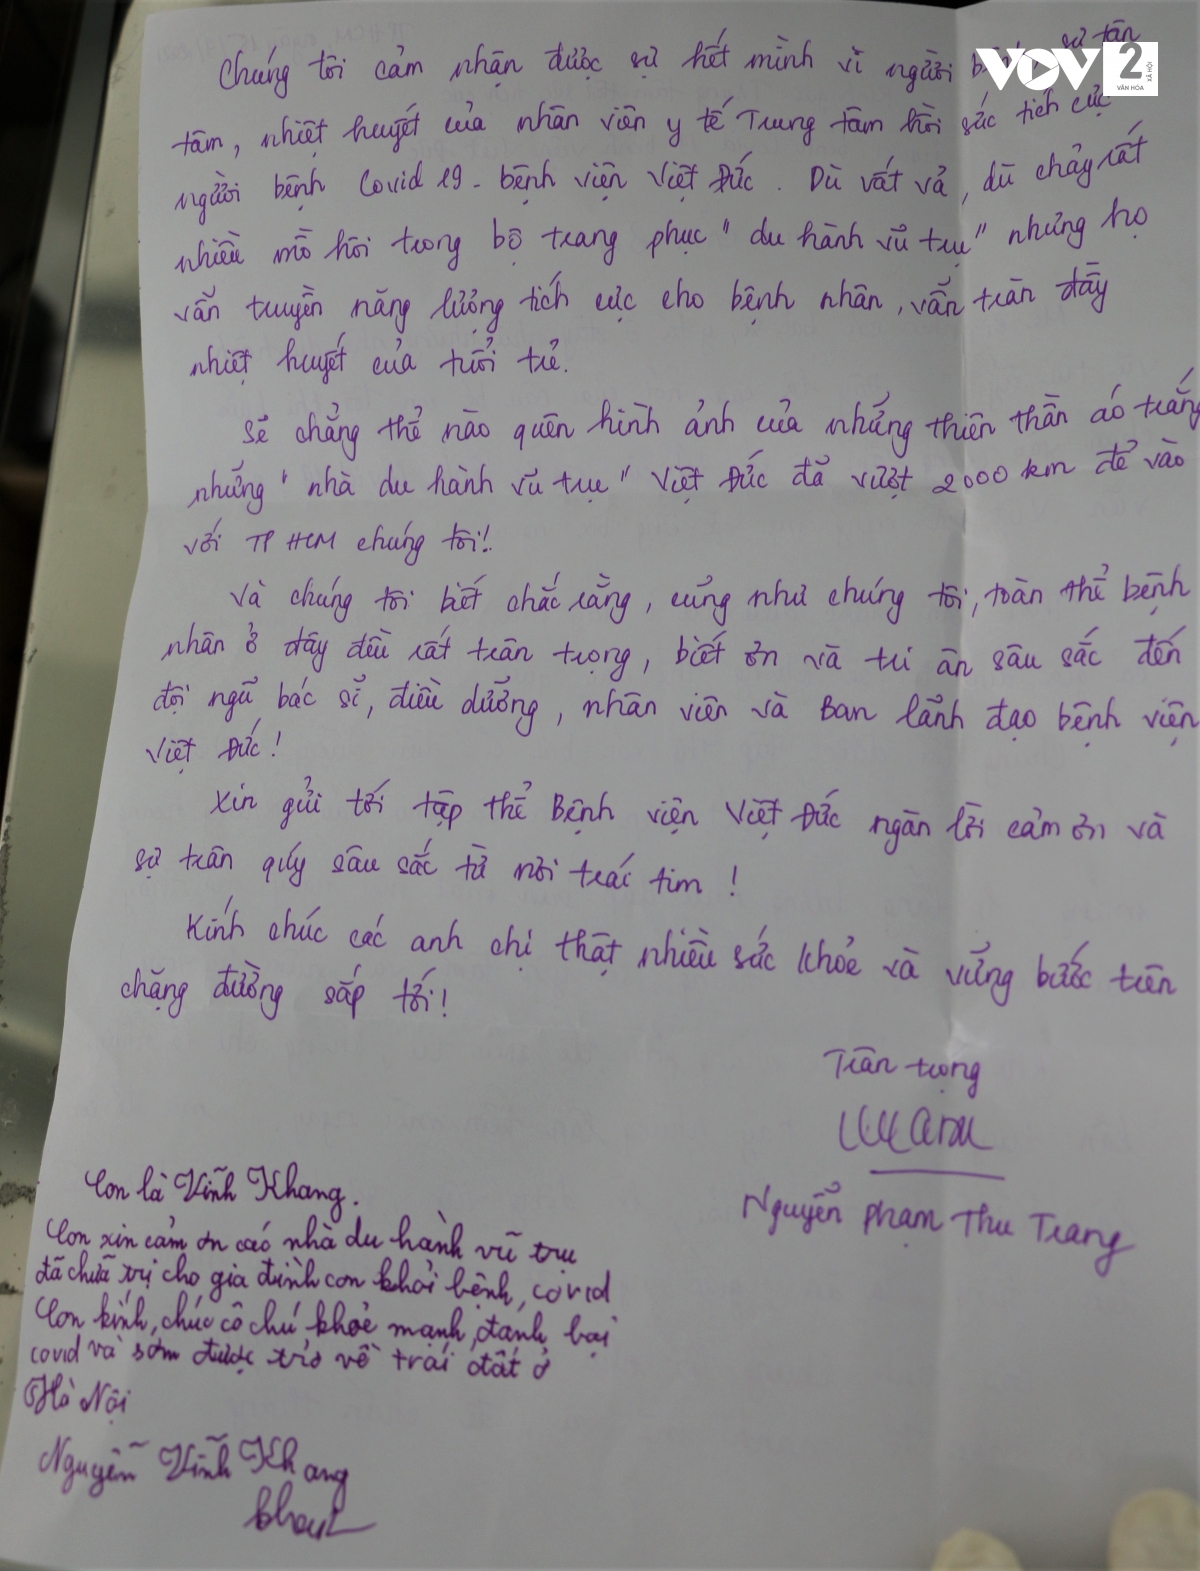 VOV2
VĂN HÓA
XÃ HỘI
Chúng tôi cảm nhận được sự hết mình vì người bệnh, sự tận
tâm, nhiệt huyết của nhân viên y tế Trung tâm hồi sức tích cực
người bệnh Covid 19 - bệnh viện Việt Đức. Dù vất vả, dù chảy rất
nhiều mồ hôi trong bộ trang phục "du hành vũ trụ" nhưng họ
vẫn truyền năng lượng tích cực cho bệnh nhân, vẫn tràn đầy
nhiệt huyết của tuổi trẻ.
Sẽ chẳng thể nào quên hình ảnh của những thiên thần áo trắng
những "nhà du hành vũ trụ" Việt Đức đã vượt 2000 km để vào
với TP HCM chúng tôi!
Và chúng tôi biết chắc rằng, cũng như chúng tôi, toàn thể bệnh
nhân ở đây đều rất trân trọng, biết ơn và tri ân sâu sắc đến
đội ngũ bác sĩ, điều dưỡng, nhân viên và Ban lãnh đạo bệnh viện
Việt Đức!
Xin gửi tới tập thể Bệnh viện Việt Đức ngàn lời cảm ơn và
sự trân quý sâu sắc từ nơi trái tim!
Kính chúc các anh chị thật nhiều sức khỏe và vững bước trên
chặng đường sắp tới!
Trân trọng
Nguyễn Phạm Thu Trang
Con là Vĩnh Khang.
Con xin cảm ơn các nhà du hành vũ trụ
đã chữa trị cho gia đình con khỏi bệnh, covid
Con kính, chúc cô chú khỏe mạnh, đánh bại
covid và sớm được trở về trái đất ở
Hà Nội
Nguyễn Vĩnh Khang